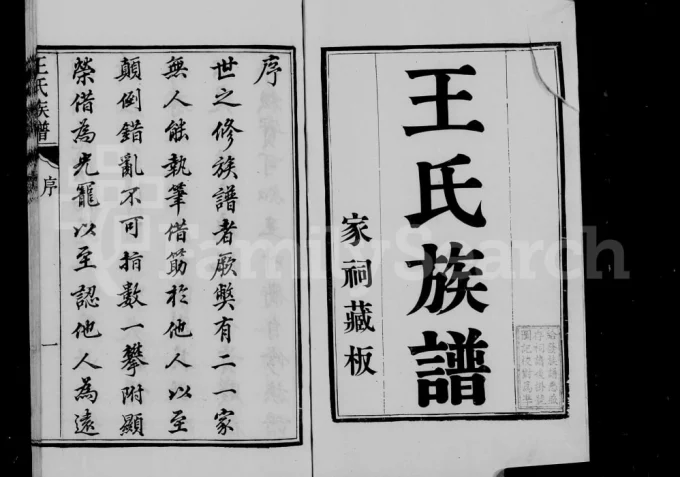 王氏族譜
家祠藏板
序
世之修族譜者厥獘有二一家
無人能執筆借筯於他人以至
顛倒錯亂不可指數一攀附顯
榮借為光寵以至認他人為遠
王氏族譜 序 一
FamilySearch